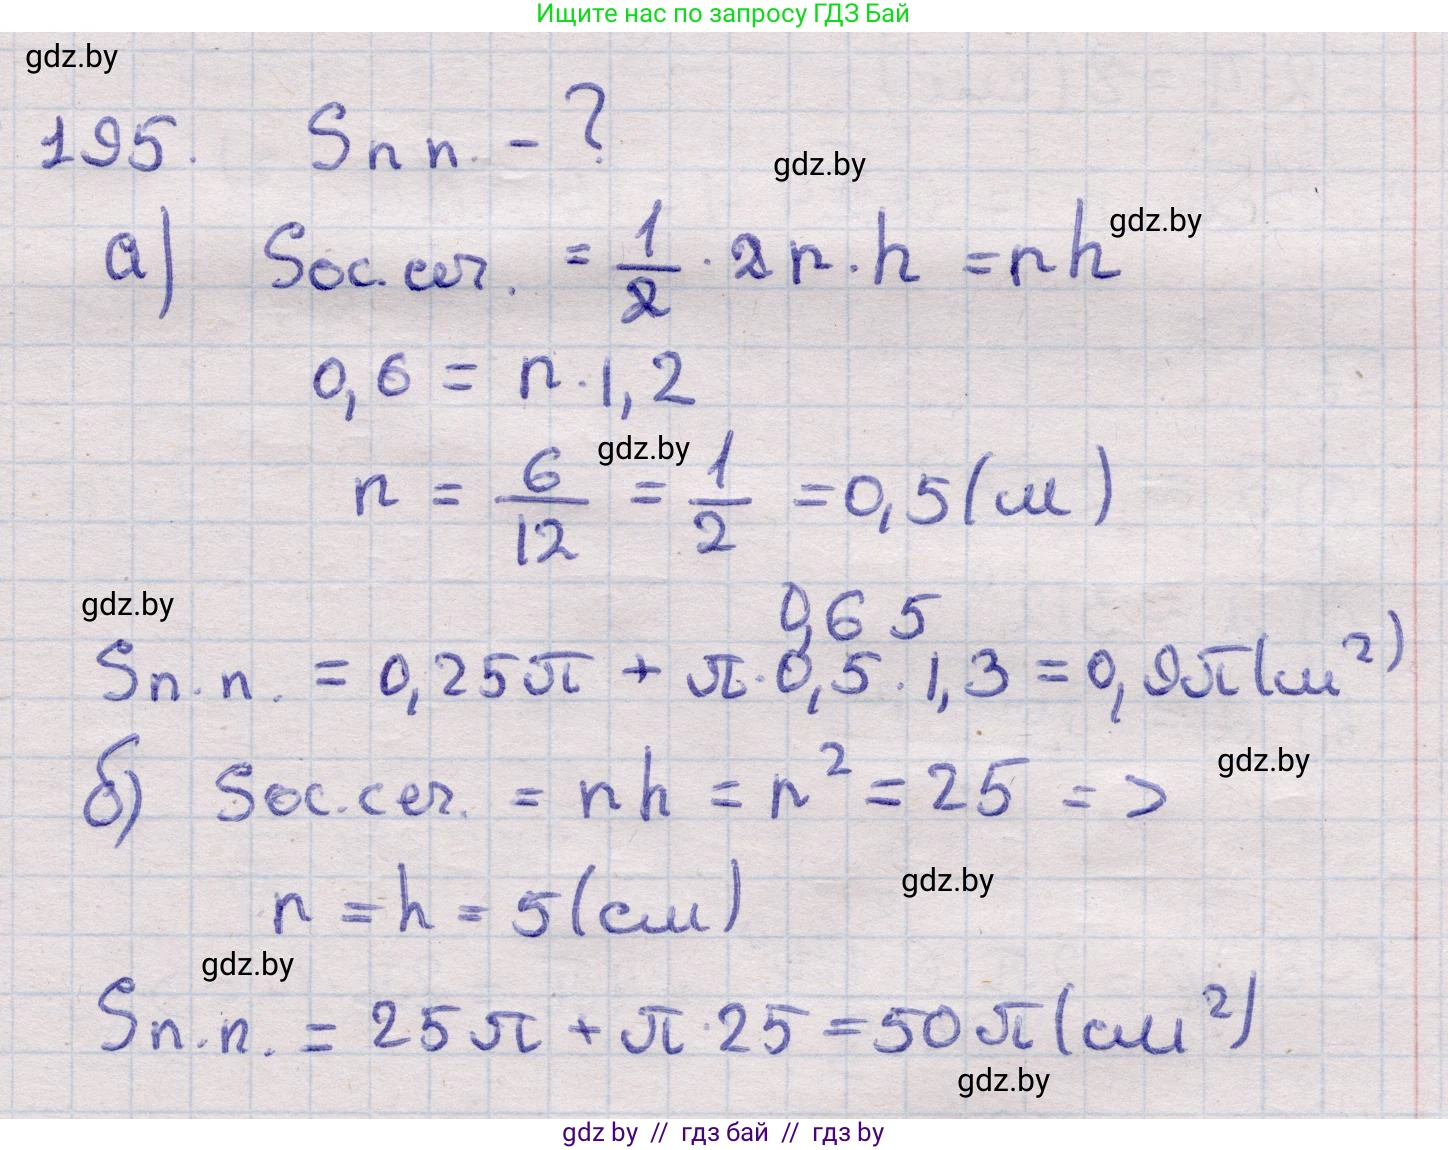 Ищите нас по запросу ГДЗ Бай
gdz.by
195. Sп п. - ?
gdz.by
а) Sос.сеч. = 1/2 · 2r · h = rh
gdz.by
0,6 = r · 1,2
r = 6/12 = 1/2 = 0,5 (м)
gdz.by
gdz.by
0,65
Sп.п. = 0,25π + π · 0,5 · 1,3 = 0,9π (м²)
б) Sос.сеч. = rh = r² = 25 =>
gdz.by
r = h = 5 (см)
gdz.by
gdz.by
Sп.п. = 25π + π · 25 = 50π (см²)
gdz.by
gdz by // гдз бай // гдз by